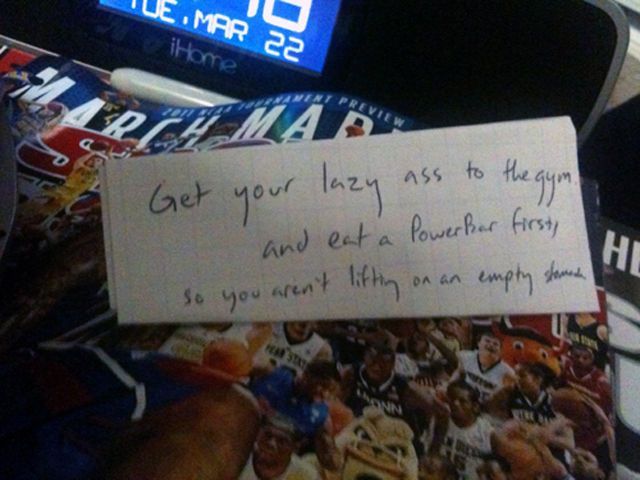 TUE, MAR 22
iHome
2011 NCAA TOURNAMENT PREVIEW
MARCH MAD
Get your lazy ass to the gym.
and eat a PowerBar first,
so you aren't lifting on an empty stomach
PENN STATE
UCONN